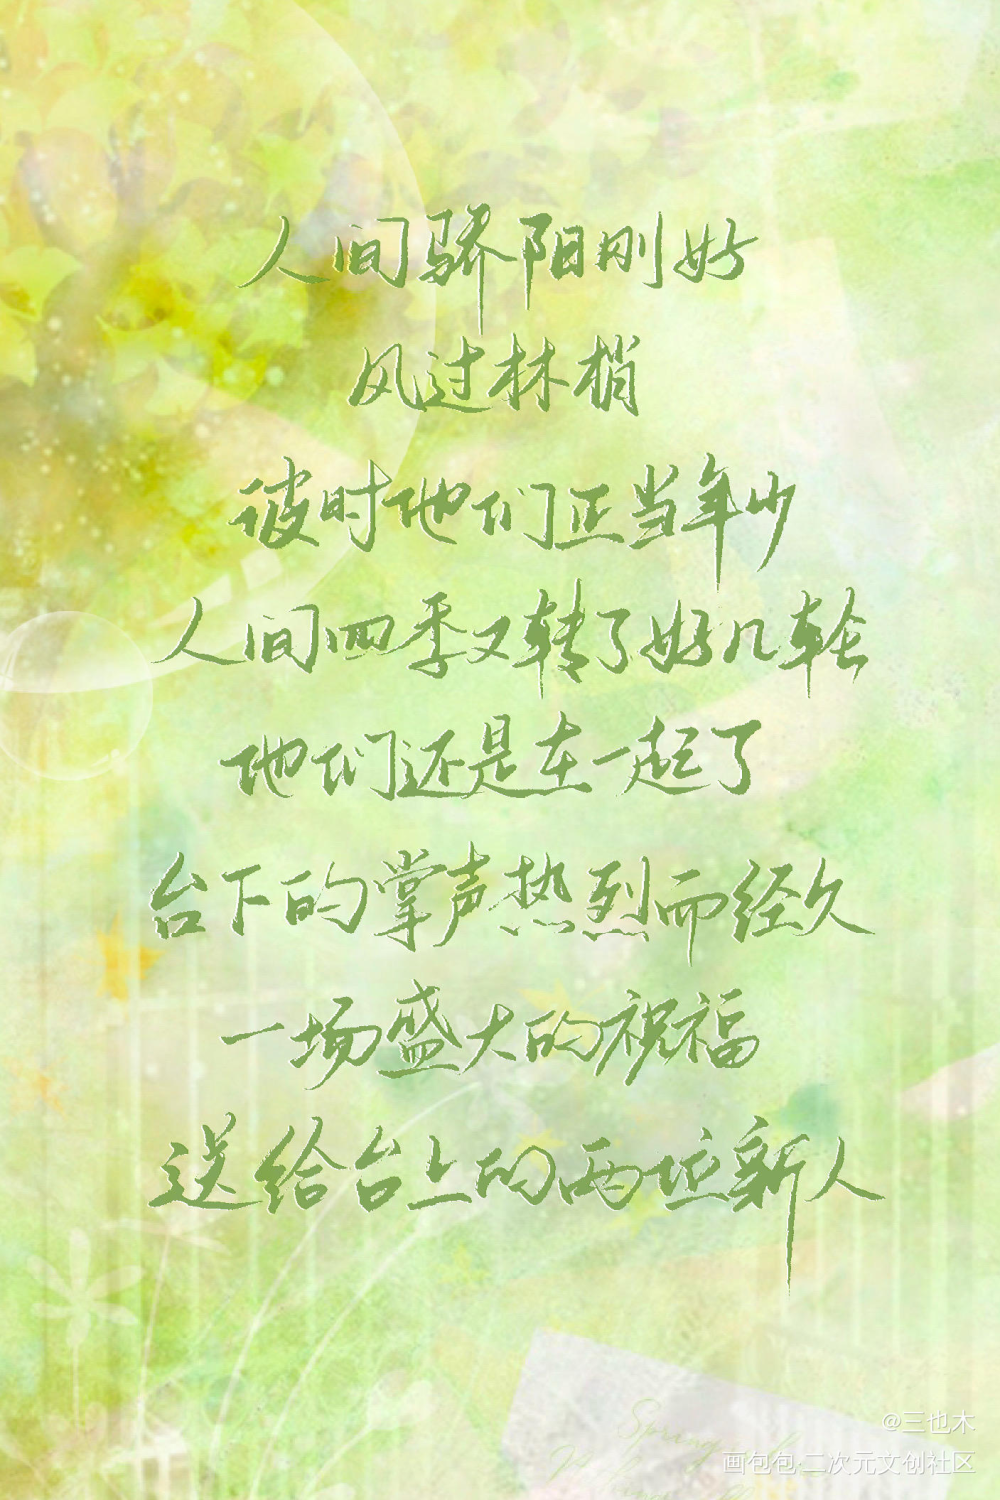 人间骄阳刚好
风过林梢
彼时他们正当年少
人间四季又转了好几轮
他们还是在一起了
台下的掌声热烈而经久
一场盛大的祝福
送给台上的两位新人
Spring
@三也木
画包包·二次元文创社区